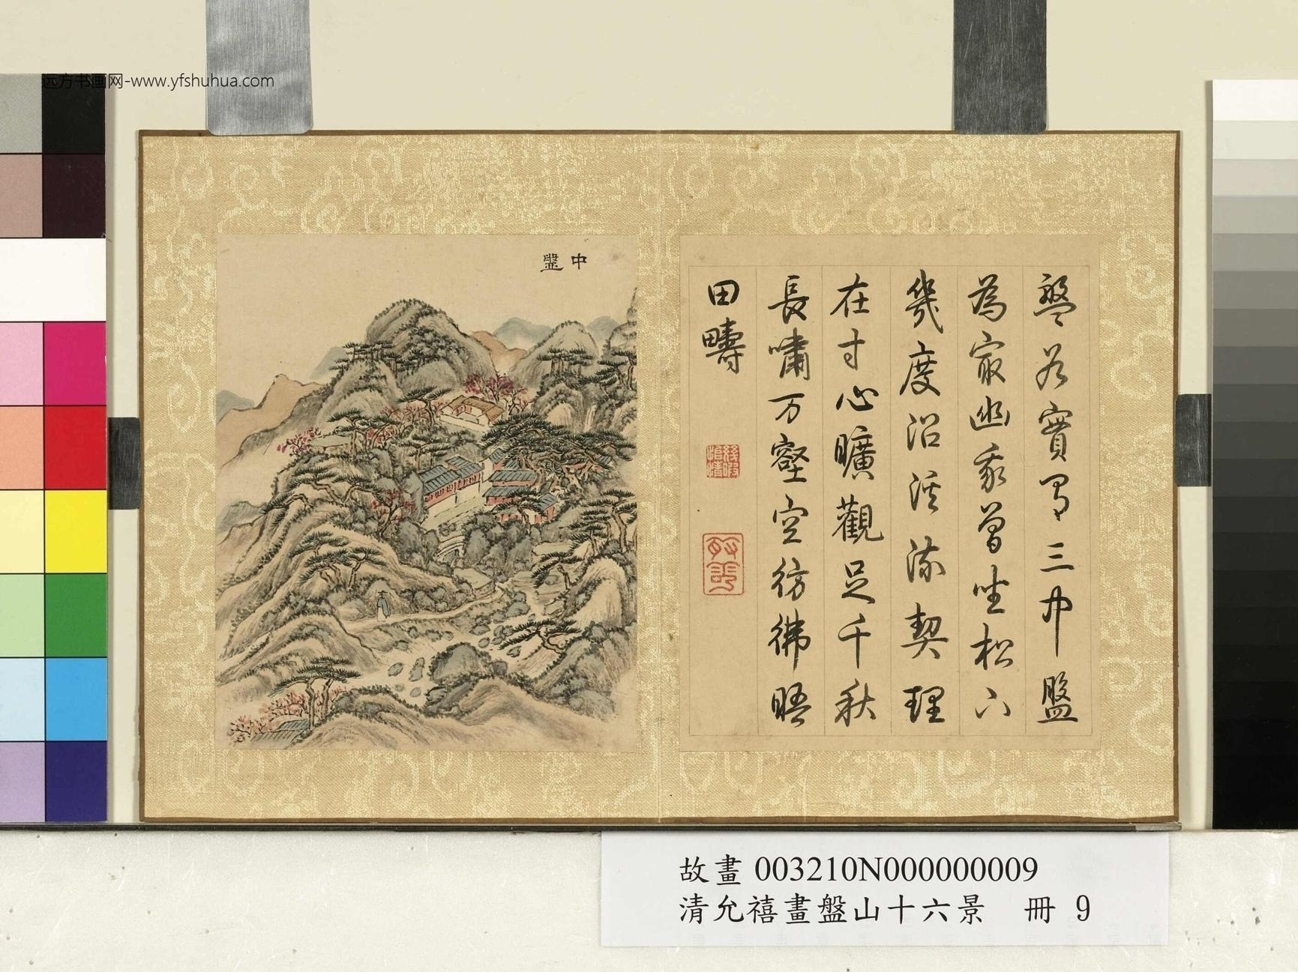 远方书画网-www.yfshuhua.com
中盤
盤實有三中盤
為最幽我曾坐松下
幾度沿溪流契理
在寸心曠觀足千秋
長嘯万壑空彷彿晤
田疇
故畫 003210N000000009
清允禧畫盤山十六景 冊 9